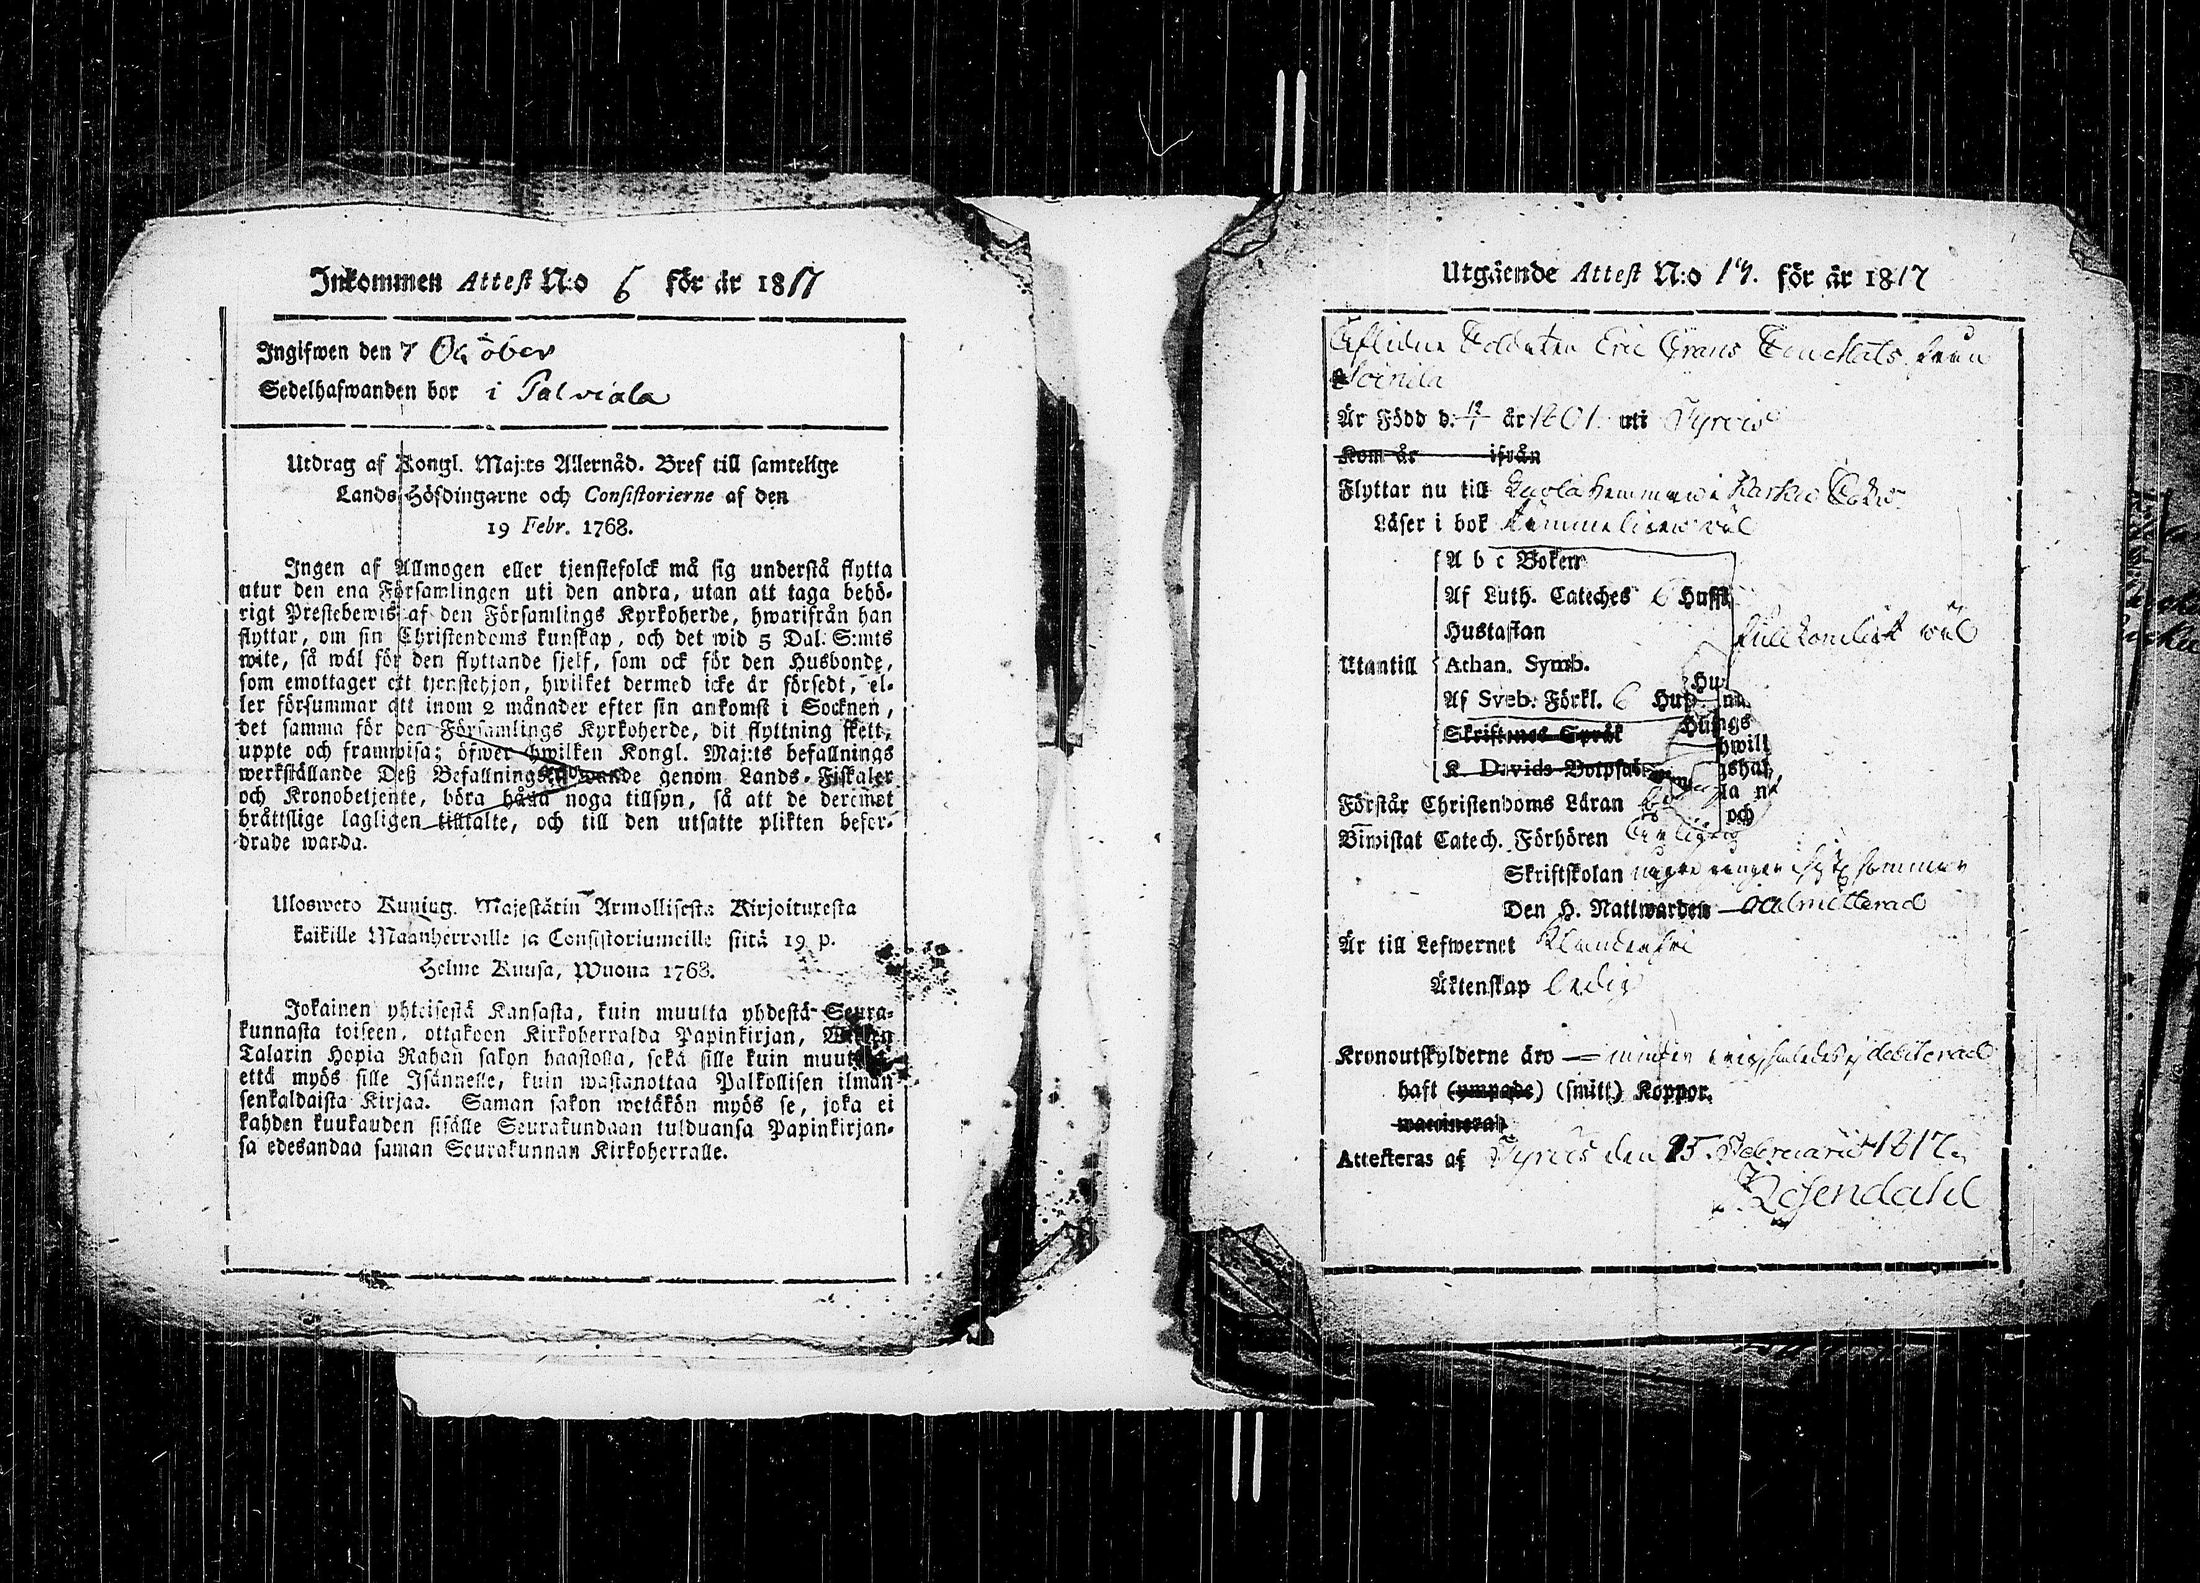 Inkommen Attest N:o 6 för år 1817
Ingifwen den 7 October
Sedelhafwanden bor i Palviala
Utdrag af Kongl. Maj:ts Allernåd. Bref till samtelige
Lands-Höfdingarne och Consistorierne af den
19 Febr. 1768.
Ingen af Allmogen eller tjenstefolck må sig understå flytta
utur den ena Församlingen uti den andra, utan att taga behö-
rigt Prestebewis af den Församlings Kyrkoherde, hwarifrån han
flyttar, om sin Christendoms kunskap, och det wid 5 Dal. S:mts
wite, så wäl för den flyttande sjelf, som ock för den Husbonde,
som emottager ett tjenstehjon, hwilket dermed icke är försedt, el-
ler försummar att inom 2 månader efter sin ankomst i Socknen,
det samma för den Församlings Kyrkoherde, dit flyttning skett,
uppte och framwisa; öfwer hwilken Kongl. Maj:ts befallnings
werkställande Deß Befallningshafwande genom Lands-Fiskaler
och Kronobetjente, böra hålla noga tillsyn, så att de deremot
bråttslige lagligen tilltalte, och till den utsatte plikten befor-
drade warda.
Ulosweto Kuning. Majestätin Armollisesta Kirjoituxesta
kaikille Maanherroille ja Consistoriumeille siitä 19 p.
Helme Kuusa, Wuona 1768.
Jokainen yhteisestä Kansasta, kuin muutta yhdestä Seura-
kunnasta toiseen, ottakoon Kirkoherralda Papinkirjan,
Talarin Hopia Rahan sakon haastolla, sekä sille kuin
että myös sille Isännelle, kuin wastanottaa Palkollisen ilman
senkaldaista Kirjaa. Saman sakon wetäkön myös se, joka ei
kahden kuukauden sisälle Seurakundaan tulduansa Papinkirjan-
sa edesandaa saman Seurakunnan Kirkoherralle.
Utgående Attest N:o 14. för år 1817
Aflidne Soldaten Eric Grans Son
Soinila
Är Född d. 12/1 år 1801. uti Tyrvis
Kom år ifrån
Flyttar nu till Hemman i Karkku Sokn
Läser i bok tämmeligen väl
A b c Boken
Af Luth. Cateches 6 Hufft
Hustaflan
fullkomligt väl
Utantill Athan. Symb.
Af Sveb. Förkl. 6 Huf
Skriftenes Språk
K. Davids Botpsal
Förstår Christendoms Läran
Biwistat Catech. Förhören
Skriftskolan några gånger sommar
Den H. Nattwarden oadmitterad
Är till Lefwernet Klanderfri
Äktenskap ledig
Kronoutskylderne äro – debiterad
haft (ympade) (smitt) Koppor.
waccinerad
Attesteras af Tyrvis den 25. Februarii 1817.
Rosendahl